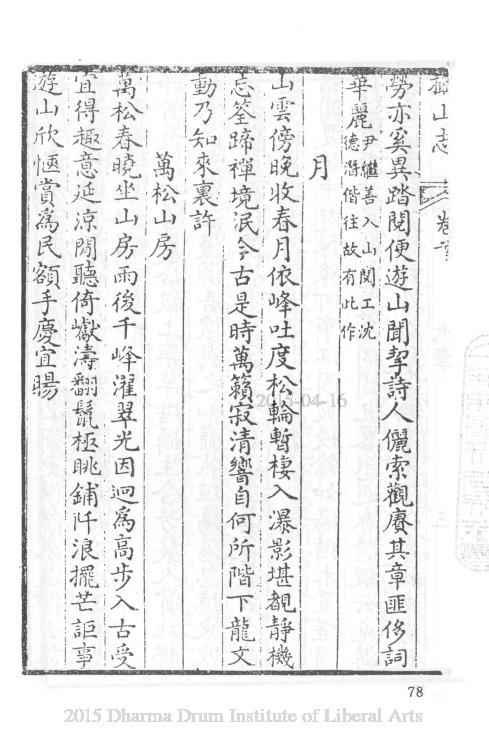 攝山志 卷首
勞亦奚異踏閱便遊山聞挈詩人儷索觀賡其章匪侈詞
華麗尹繼善入山閱工沈德潛偕往故有此作
月
山雲傍晚收春月依峰吐度松輪暫棲入瀑影堪覩靜機
忘筌蹄禪境泯今古是時萬籟寂清響自何所階下龍文
動乃知來裏許
萬松山房
萬松春曉坐山房雨後千峰濯翠光因迴爲高步入古受
宜得趣意延涼閒聽倚巘濤翻鬣極眺鋪阡浪擺芒詎事
遊山欣愜賞爲民額手慶宜暘
2015-04-16
78
2015 Dharma Drum Institute of Liberal Arts